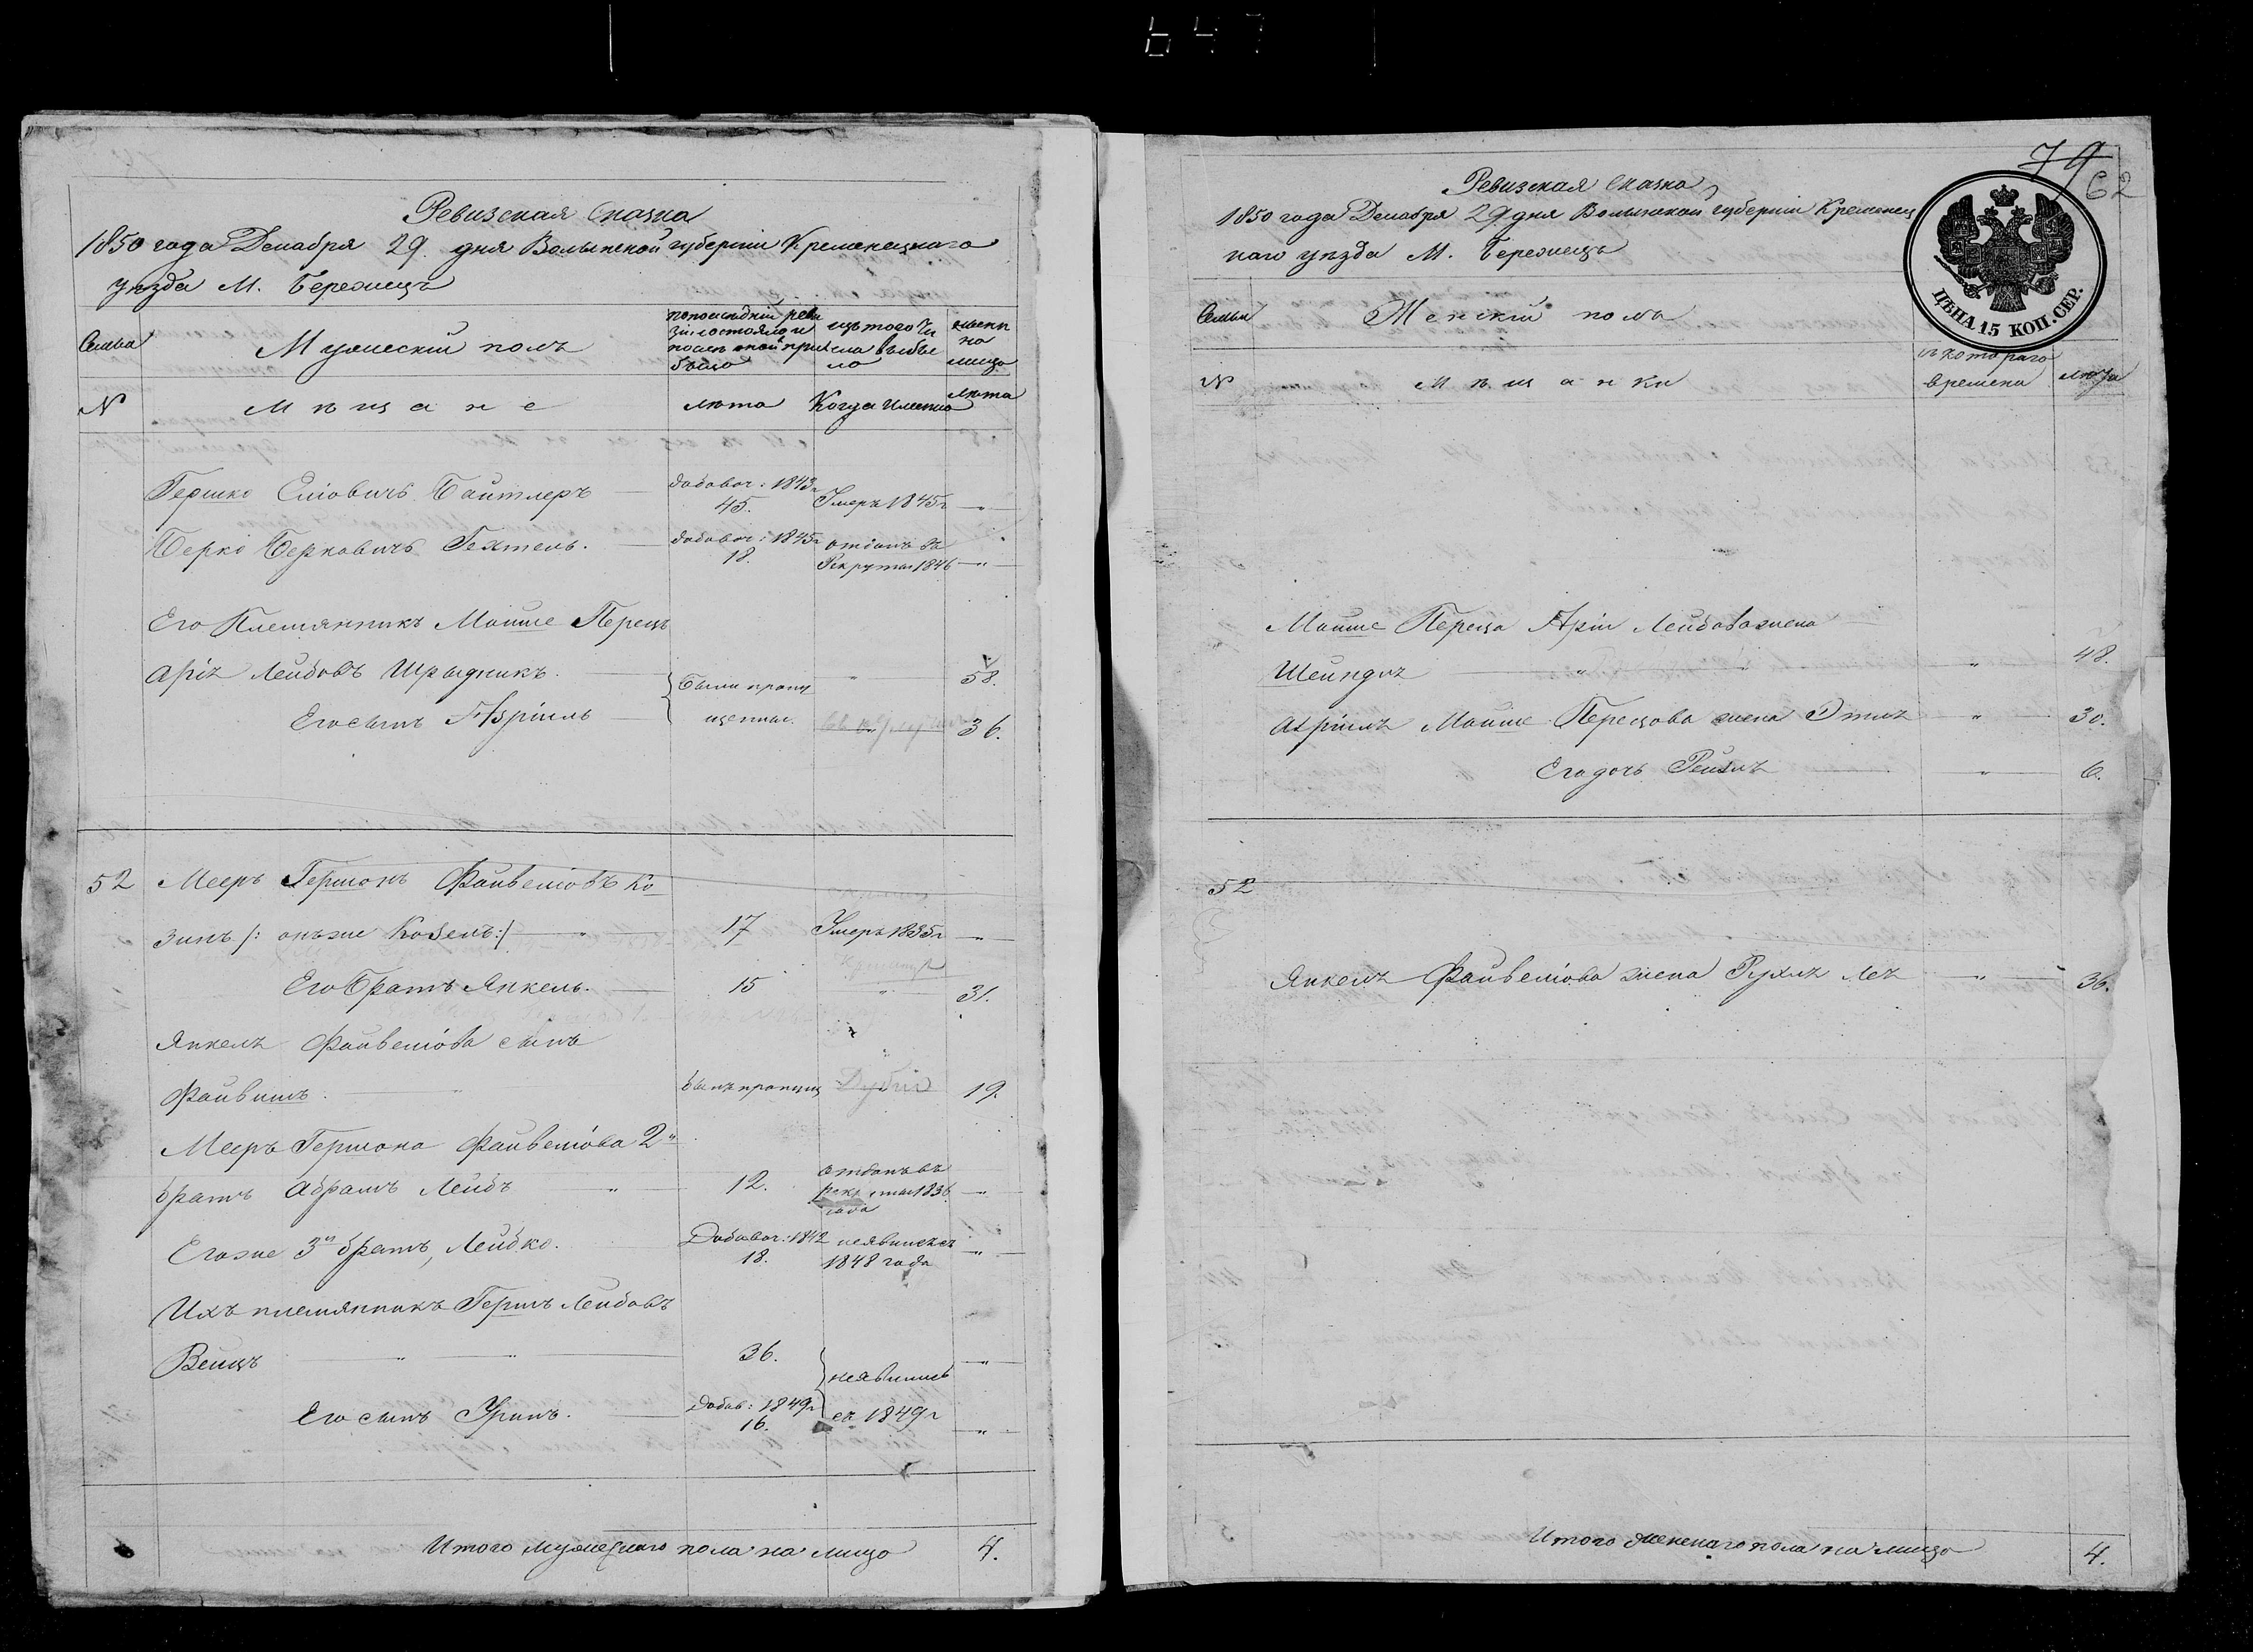 647
Ревизская Сказка
1850 года Декабря 29. дня Волынской губерніи Кременецкаго
уезда М. Бережецъ
Семья
Мужескій полъ
по последній реви
зіи состояло и
после оной при
было
изъ того чи
сла выбы
ло
ныне
на
лицо
№
Мещане
лета
Когда именно
лета
Гершко Еліовичъ Байтлеръ
добавоч: 1843г
45.
Умеръ 1845г
Берко Берковичъ Гехтель.
добавоч: 1845г
18.
отданъ въ
Рекруты 1846
Его Племянникъ Мойше Перецъ
Арія Лейбовъ Шрыдникъ.
58.
Его сынъ Азріиль
Были пропу
щенны.
36.
52
Мееръ Гершонъ Файвеліовъ Ко
зинъ /: онъ же Козелъ :/
17
Умеръ 1835г
Его Братъ Янкель.
15
31.
Янкеля Файвеліова сынъ
Файвишъ.
былъ пропущ
Дубно
19.
Мееръ Гершона Файвеліова 2й
братъ Абрамъ Лейбъ
12.
отданъ въ
1836
года
Его же 3й братъ, Лейбко.
Добавоч: 1842
18.
неявился
1848 года
Ихъ племянникъ Гершъ Лейбовъ
Вейцъ
36.
неявились
Его сынъ Уринъ.
Добав: 1849г
16.
съ 1849г
Итого мужескаго пола на лицо
4.
79
62
Ревизская Сказка
1850 года Декабря 29 дня Волынской губерніи Кременец
каго уезда М. Бережецъ
ЦѢНА 15 КОП. СЕР.
Семья
Женскій полъ
№
Мещанки
съ котораго
времени
лета
Мойше Переца Арія Лейбова жена
Шейндля
48.
Азріиля Мойше Перецова жена Этля
30.
Его дочь Рейзля
6.
52
Янкеля Файвеліова жена Рухля Лея
36.
Итого женскаго пола на лицо
4.